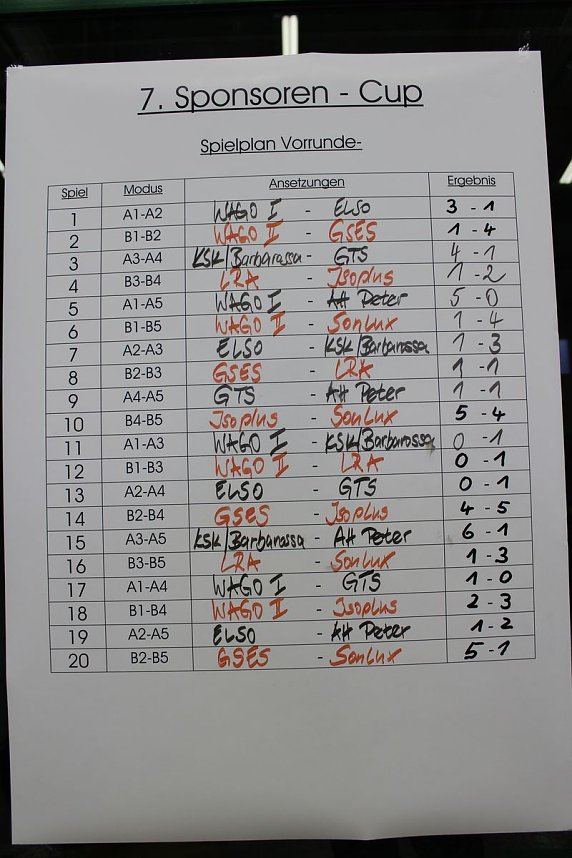 7. Sponsoren - Cup
Spielplan Vorrunde-
Spiel Modus Ansetzungen Ergebnis
1 A1-A2 WAGO I - ELSO 3 - 1
2 B1-B2 WAGO II - GSES 1 - 4
3 A3-A4 KSK/Barbarossa - GTS 4 - 1
4 B3-B4 LRA - Isoplus 1 - 2
5 A1-A5 WAGO I - AH Peter 5 - 0
6 B1-B5 WAGO II - SonLux 1 - 4
7 A2-A3 ELSO - KSK/Barbarossa 1 - 3
8 B2-B3 GSES - LRA 1 - 1
9 A4-A5 GTS - AH Peter 1 - 1
10 B4-B5 Isoplus - SonLux 5 - 4
11 A1-A3 WAGO I - KSK/Barbarossa 0 - 1
12 B1-B3 WAGO II - LRA 0 - 1
13 A2-A4 ELSO - GTS 0 - 1
14 B2-B4 GSES - Isoplus 4 - 5
15 A3-A5 KSK/Barbarossa - AH Peter 6 - 1
16 B3-B5 LRA - SonLux 1 - 3
17 A1-A4 WAGO I - GTS 1 - 0
18 B1-B4 WAGO II - Isoplus 2 - 3
19 A2-A5 ELSO - AH Peter 1 - 2
20 B2-B5 GSES - SonLux 5 - 1